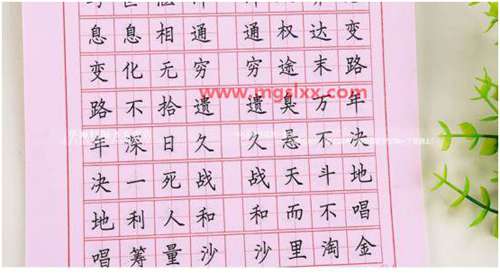 息息相通 通权达变
变化无穷 穷途末路
www.mgslxx.com
路不拾遗 遗臭万年
年深日久 久悬不决
决一死战 战天斗地
地利人和 和而不唱
唱筹量沙 沙里淘金